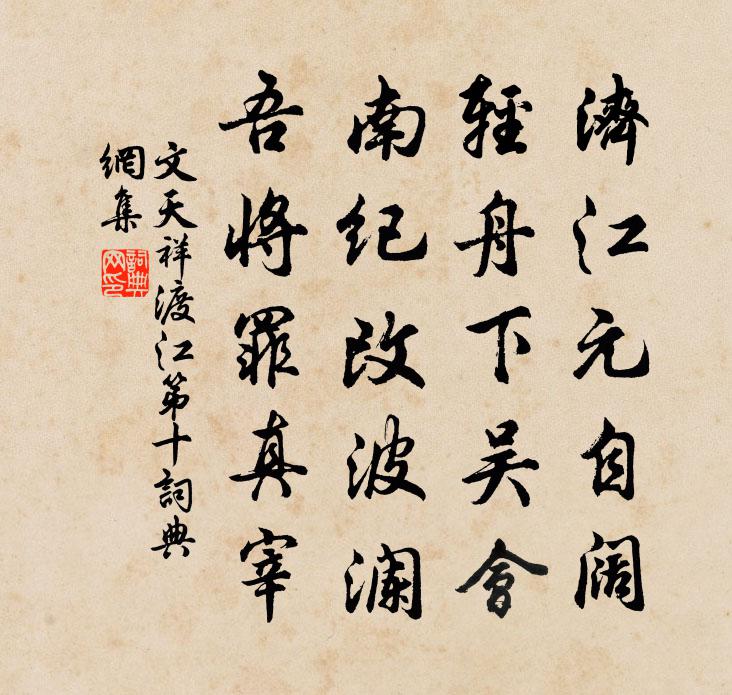 濟江元自闊
輕舟下吳會
南纪改波澜
吾將罪真宰
文天祥渡江第十詞典
網集
詞典
网印